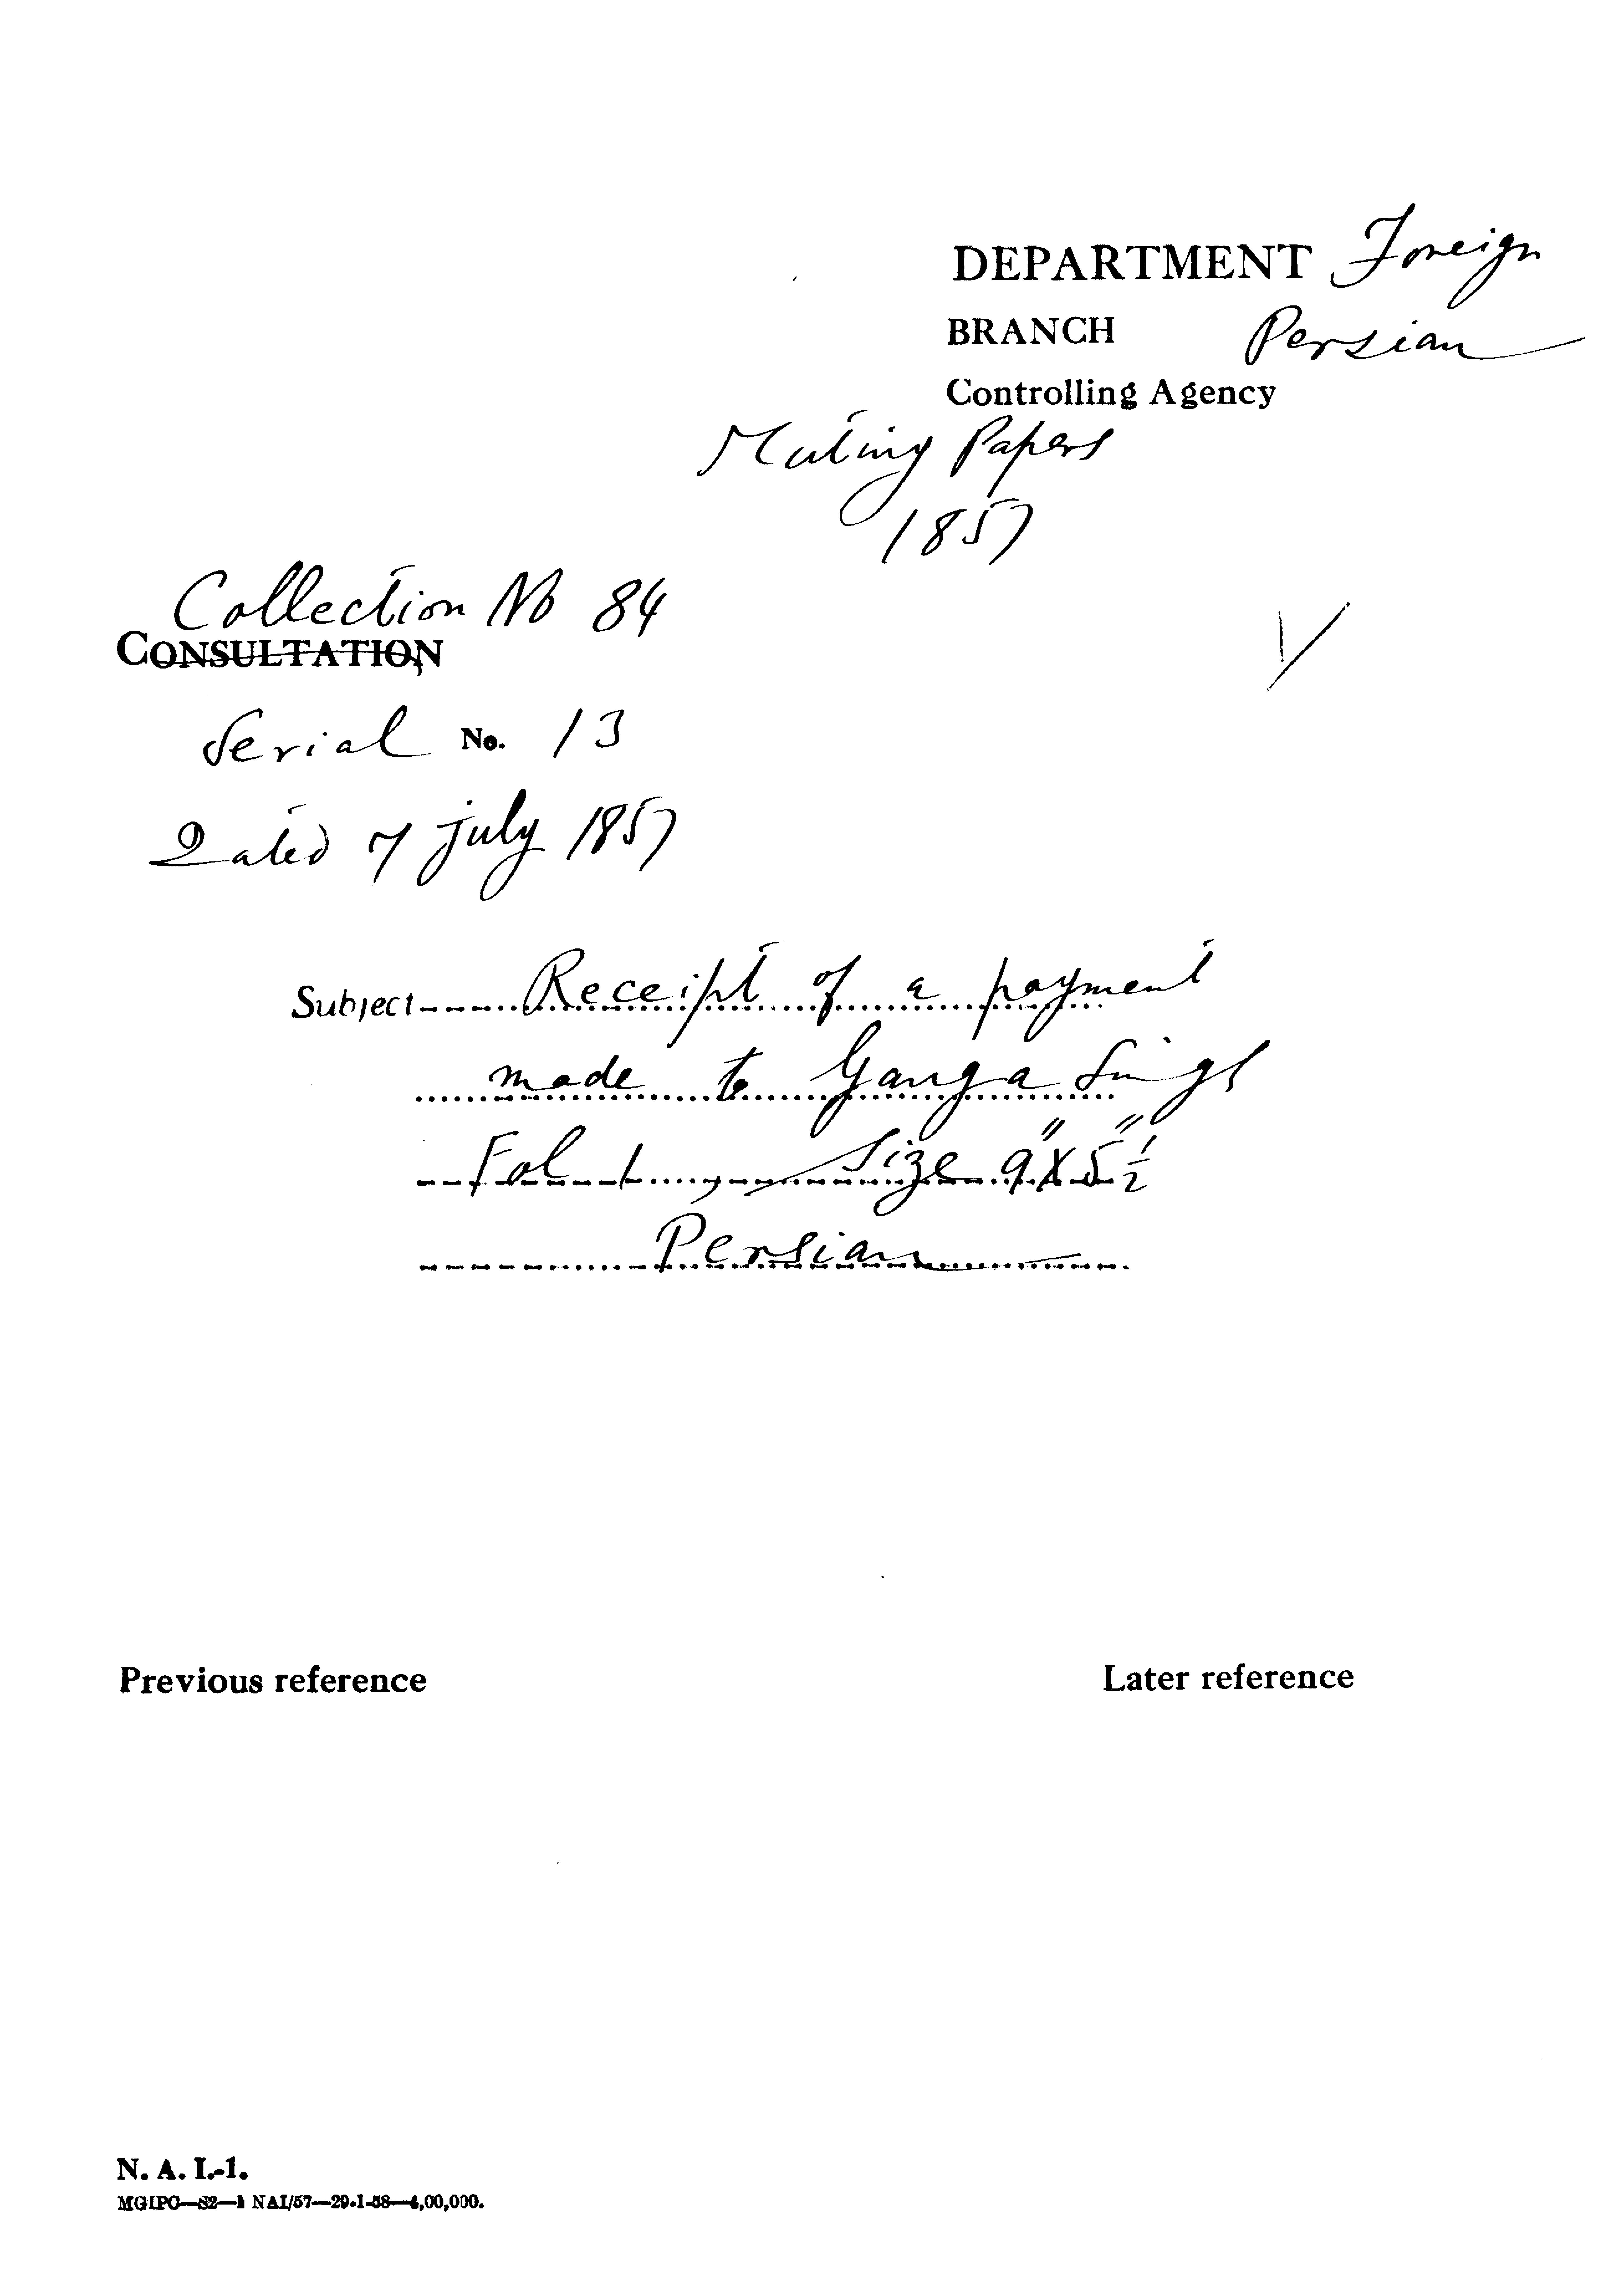 DEPARTMENT Foreign
BRANCH Persian
Controlling Agency
Mutiny Papers
1857
Collection No 84
CONSULTATION
Serial No. 13
Dated 7 July 1857
Subject Receipt of a payment
made to Ganga Singh
Fol 1, Size 9"X5"½
Persian
Previous reference
Later reference
N. A. I.-1.
MGIPC—S2—1 NAI/57—29-1-58—4,00,000.